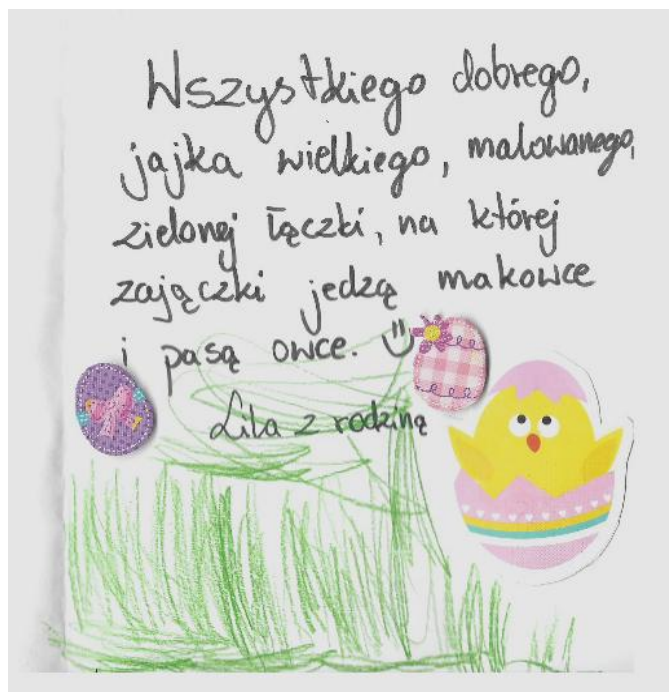 Wszystkiego dobrego,
jajka wielkiego, malowanego,
zielonej łączki, na której
zajączki jedzą makowce
i pasą owce. :)
Lila z rodziną